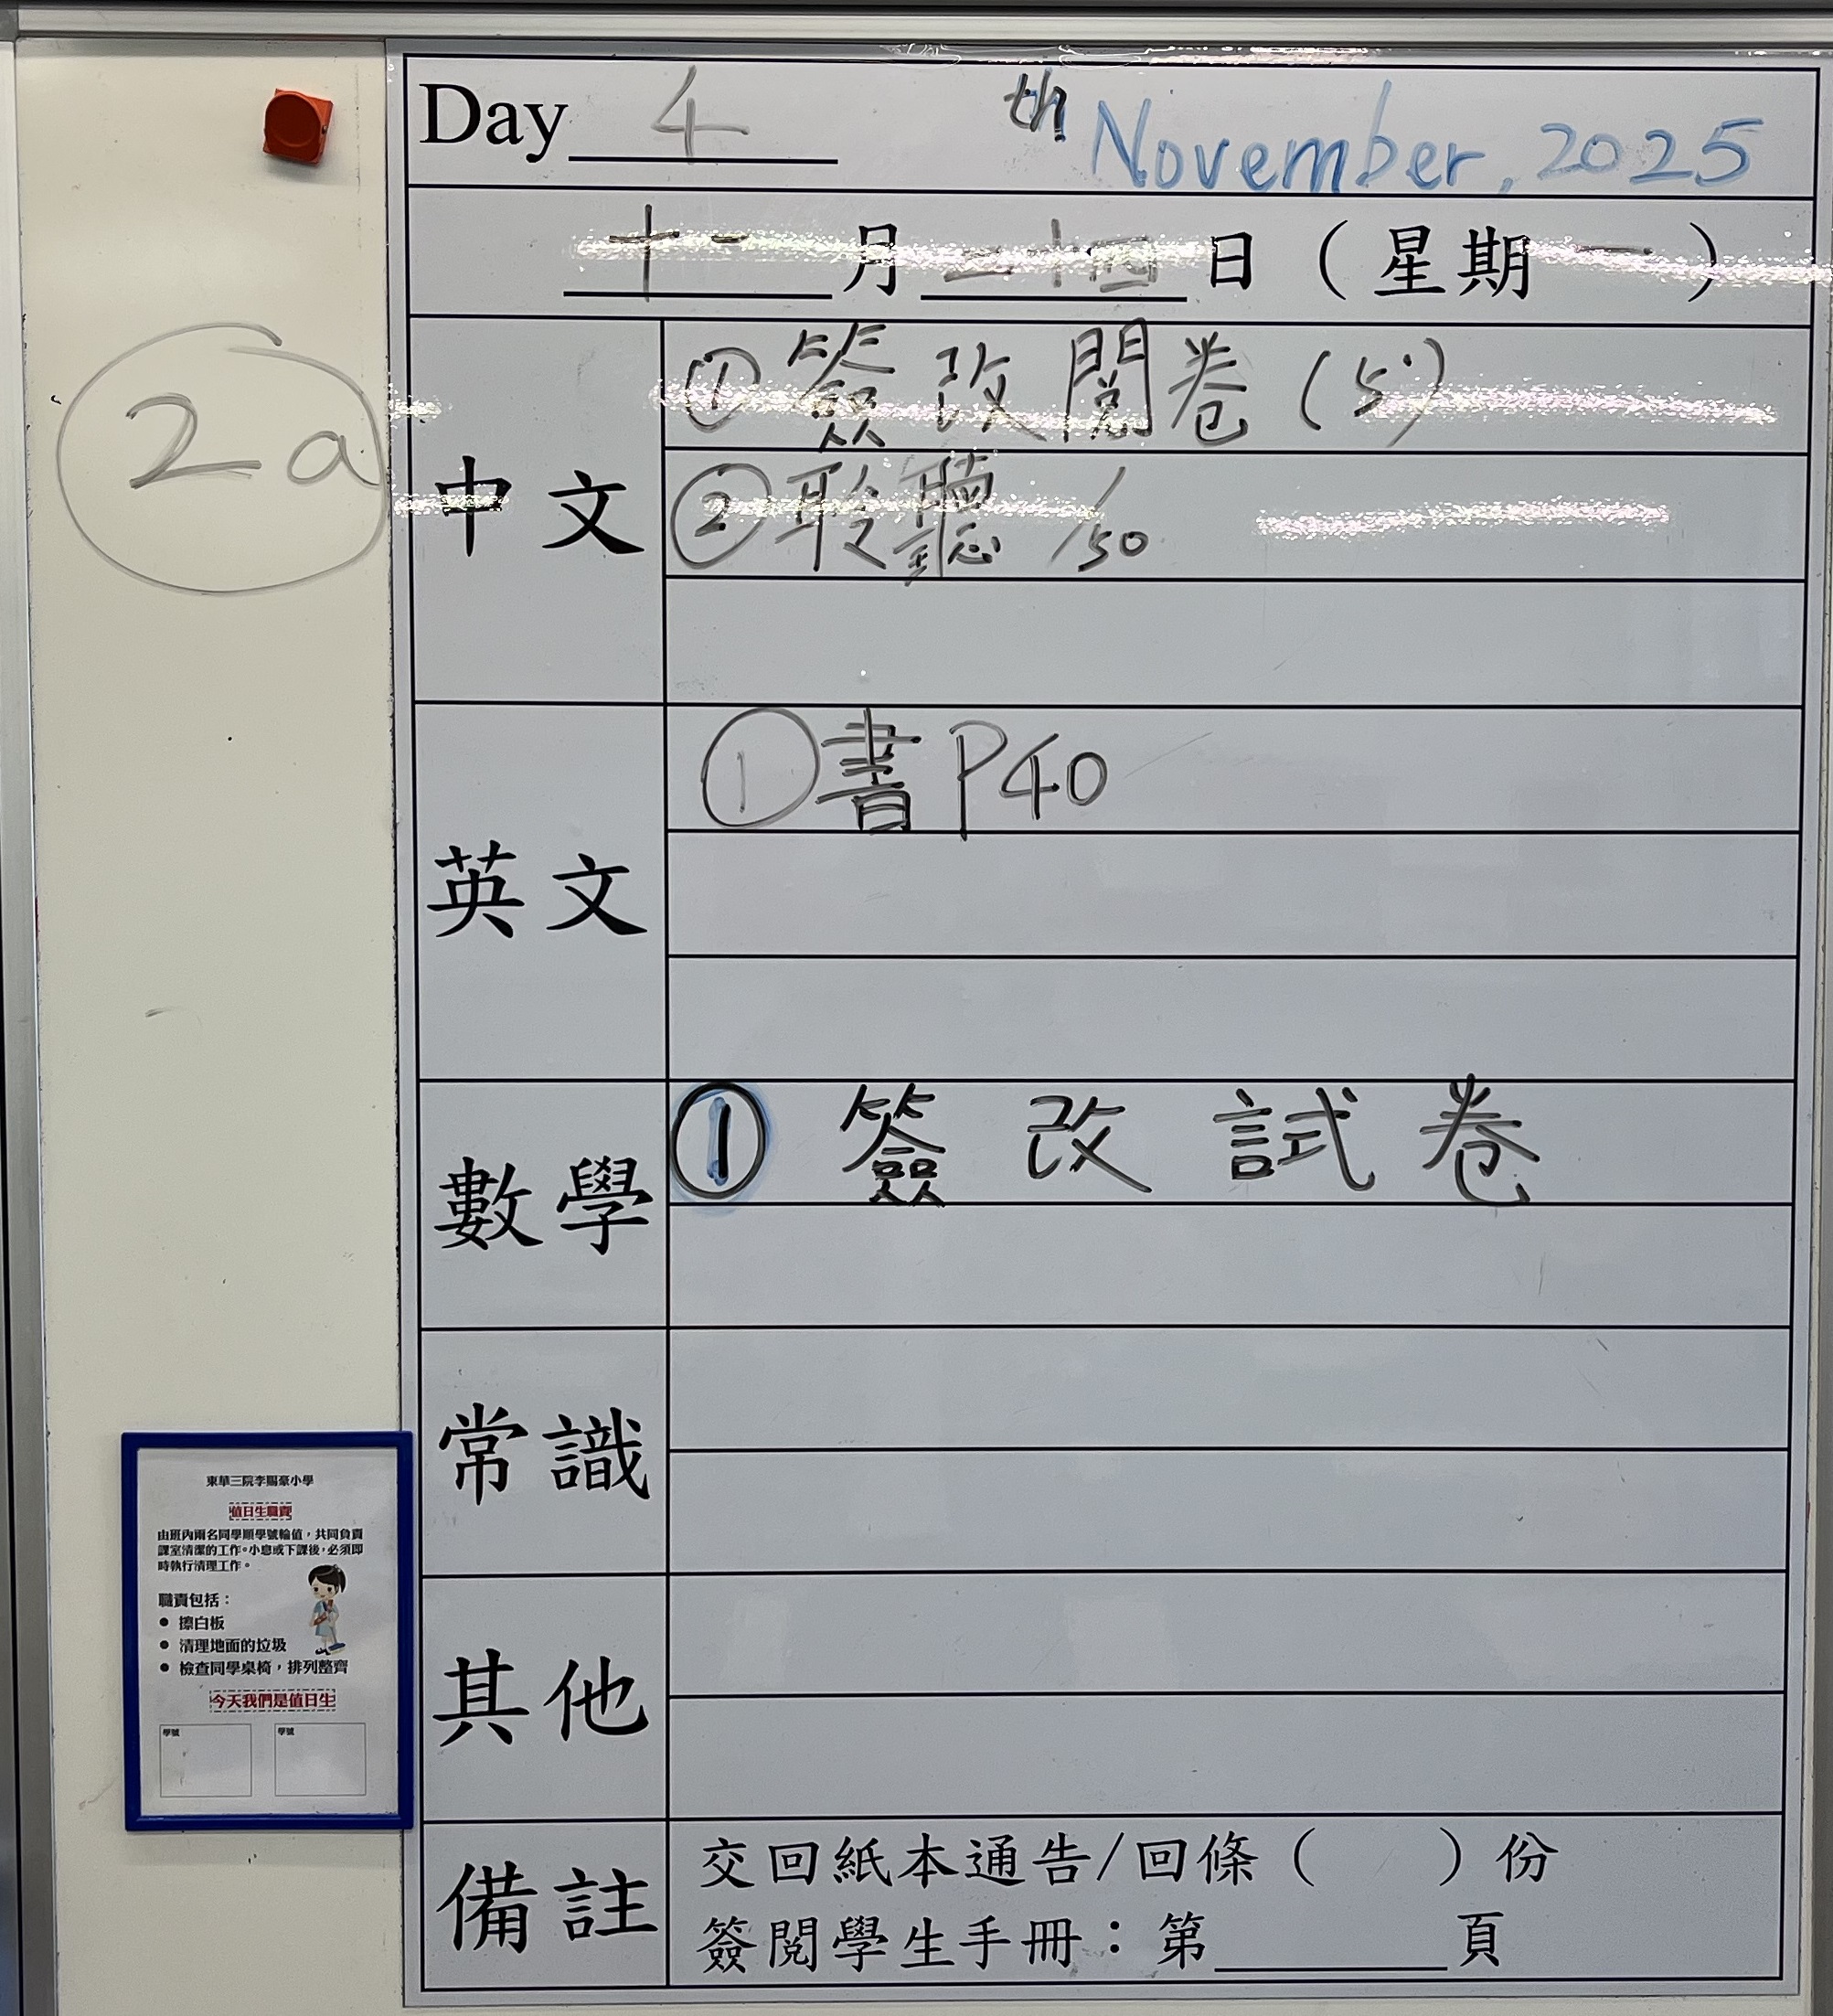 Day 4 th November, 2025
十一月二十四日（星期一）
2a
中文
①簽改閱卷(5')
②聆聽 /50
英文
①書P40
數學
①簽改試卷
常識
其他
備註
交回紙本通告/回條（　　）份
簽閱學生手冊：第＿＿＿＿頁
東華三院李賜豪小學
值日生職責
由班內兩名同學順學號輪值，共同負責
課室清潔的工作。小息或下課後，必須即
時執行清理工作。
職責包括：
● 擦白板
● 清理地面的垃圾
● 檢查同學桌椅，排列整齊
今天我們是值日生
學號 學號